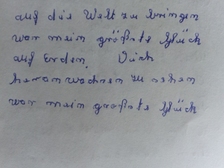 auf die Welt zu bringen
war mein größte Glück
auf Erden. Dich
heranwachsen zu sehen
war mein großste Glück